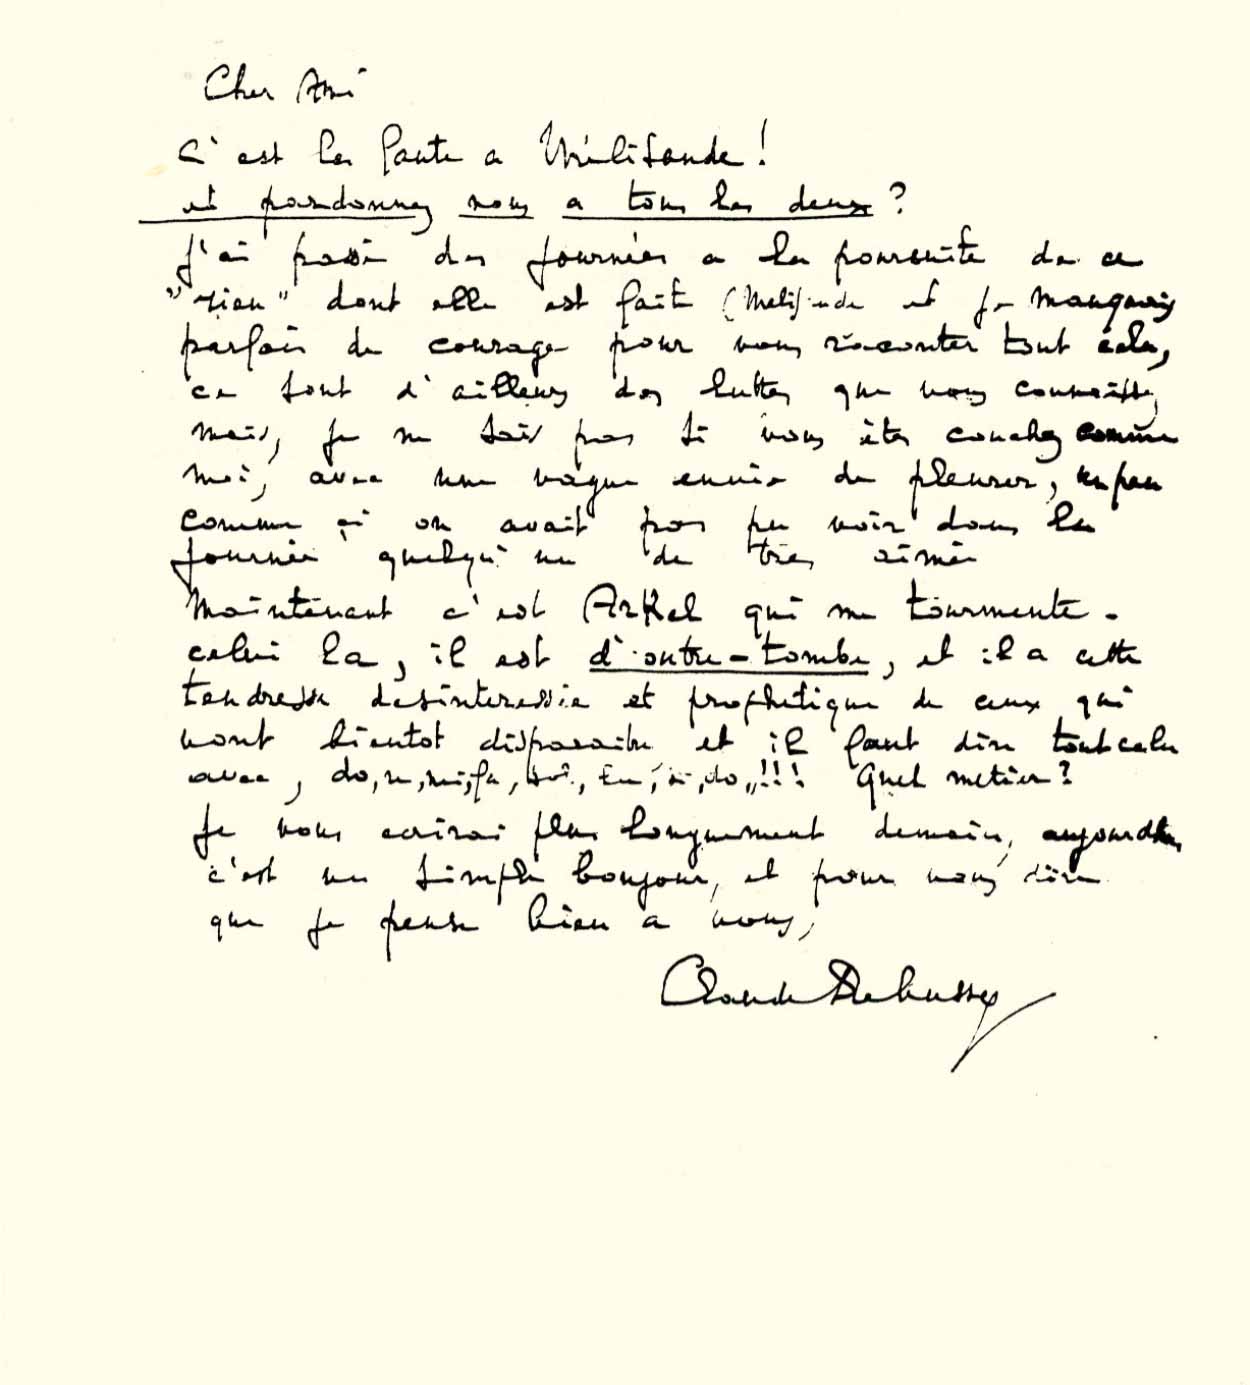 Cher Ami
C'est la faute a Mélisande!
et pardonnez nous a tous les deux?
J'ai passé des journées a la poursuite de ce
"rien" dont elle est faite (Mélisande et je manquais
parfois de courage pour vous raconter tout cela,
ce sont d'ailleurs des luttes que vous connaissez,
mais, je ne sais pas si vous êtes couchez comme
moi, avec une vague envie de pleurer, un peu
comme si on avait pas pu voir dans la
journée quelqu'un de très aimée
Maintenant c'est Arkel qui me tourmente.
celui la, il est d'outre-tombe, et il a cette
tendresse desinteressée et prophetique de ceux qui
vont bientot disparaitre et il faut dire tout cela
avec, do, re, mi, fa, sol, la, si, do,,!!! Quel metier?
Je vous ecrirai plus longuement demain, aujourd'hui
c'est un simple bonjour, et pour vous dire
que je pense bien a vous,
Claude Debussy